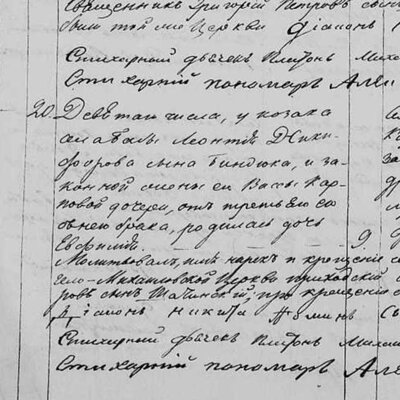 Священникъ Григорій Петровъ
той же Церкви Діаконъ
Стихарный дьячекъ Платонъ Миха
Стихарній пономаръ Але
20. Девятаго числа, у козака
Леонтія Ники-
форова сына Гиндюка, и за-
конной жены ея Вассы Кар-
повой дочери, отъ третьяго со
брака, родилась дочь
Евфимія. 9
Молитвовалъ, имя нарекъ и крещеніе
Михайловской Церкви приходскій
сынъ при крещеніи
Діаконъ Никита Неминъ
Стихарный дьячекъ Платонъ Михай
Стихарній пономаръ Але